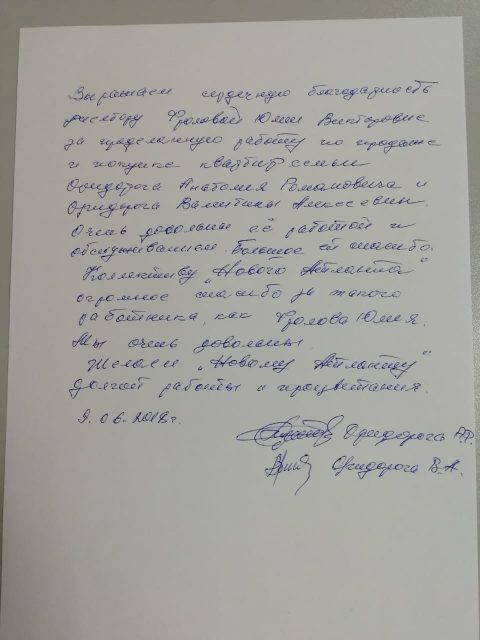 Выражаем сердечную благодарность
риелтору Фроловой Юлии Викторовне
за проделанную работу по продаже
и покупке квартир семьи
Оридорога Анатолия Романовича и
Оридорога Валентины Алексеевны.
Очень довольны её работой и
обслуживанием. Большое ей спасибо.
Коллективу "Нового Атланта"
огромное спасибо за такого
работника, как Фролова Юлия.
Мы очень довольны.
Желаем "Новому Атланту"
долгой работы и процветания.
9.06.2018г.
Оридорога А.Р.
Оридорога В.А.